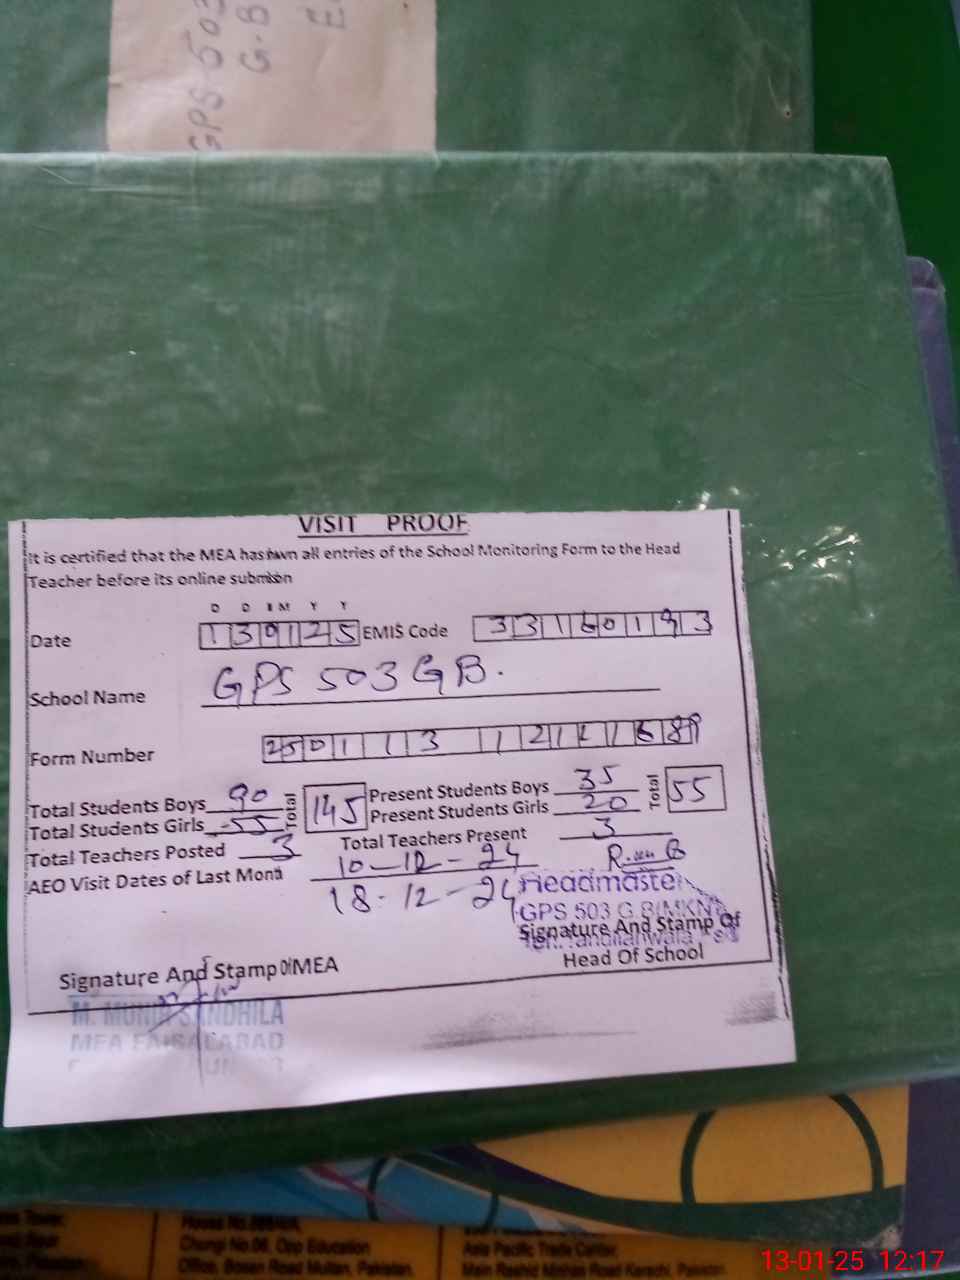 GPS 503
G.B
VISIT PROOF
It is certified that the MEA has shown all entries of the School Monitoring Form to the Head
Teacher before its online submission
D D M M Y Y
Date 130125 EMIS Code 33160193
School Name GPS 503 GB.
Form Number
Total Students Boys 90 Total 145 Present Students Boys 35 Total 55
Total Students Girls 55 Present Students Girls 20
Total Teachers Posted 3 Total Teachers Present 3
AEO Visit Dates of Last Month 10-12-24
18-12-24
Headmaster
GPS 503 G.B(MKN)
Signature And Stamp Of
Tandlianwala
Head Of School
Signature And Stamp Of MEA
M. MUNIR SANDHILA
MEA FAISALABAD
House No.
Chungi No.06, Opp Education
Office, Bosan Road Multan, Pakistan.
Asia Pacific Trade Center,
Main Rashid Minhas Road Karachi, Pakistan
13-01-25 12:17